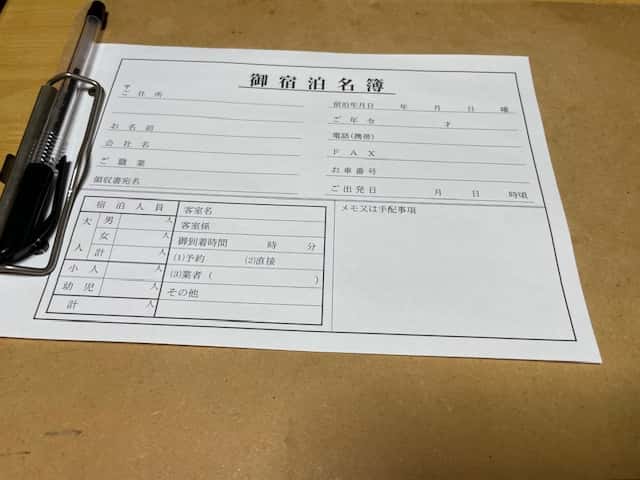 御宿泊名簿
〒
ご住所
お名前
会社名
ご職業
領収書宛名
宿泊年月日 年 月 日 曜
ご年令 才
電話(携帯)
ＦＡＸ
お車番号
ご出発日 月 日 時頃
宿泊人員
大人 男 人
女 人
計 人
小人 人
幼児 人
計 人
客室名
客室係
御到着時間 時 分
(1)予約 (2)直接
(3)業者 ( )
その他
メモ又は手配事項